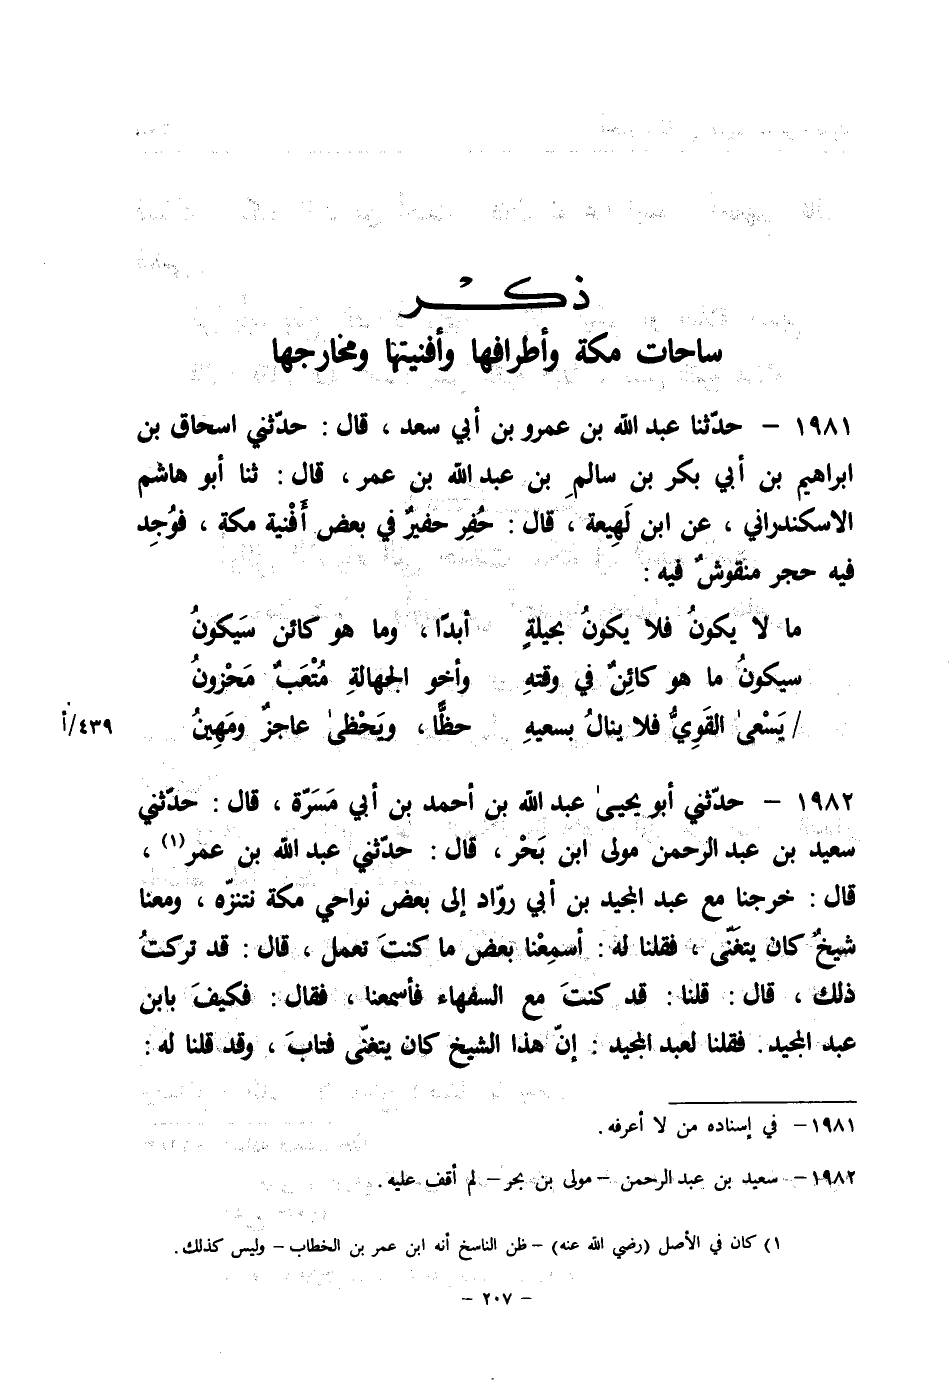 ذكـــر
ساحات مكة وأطرافها وأفنيتها ومخارجها
١٩٨١ – حدّثنا عبد الله بن عمرو بن أبي سعد ، قال : حدّثني اسحاق بن
ابراهيم بن أبي بكر بن سالمِ بن عبد الله بن عمر ، قال : ثنا أبو هاشم
الاسكندراني ، عن ابن لَهِيعة ، قال : حُفِر حفيرٌ في بعض أَفْنية مكة ، فوُجِد
فيه حجر منقوشٌ فيه :
ما لا يكونُ فلا يكونُ بحيلةٍ أبدًا ، وما هو كائن سَيكونُ
سيكونُ ما هو كائِنٌ في وقتهِ وأخو الجهالةِ مُتْعَبٌ مَحْزونُ
/ يَسْعىٰ القَوِيُّ فلا ينالُ بسعيهِ حظًّا ، ويَحْظىٰ عاجزٌ ومَهِينُ ٤٣٩/أ
١٩٨٢ – حدّثني أبو يحيىٰ عبد الله بن أحمد بن أبي مَسَرّة ، قال : حدّثني
سعيد بن عبد الرحمن مولى ابن بَحْر ، قال : حدّثني عبد الله بن عمر(١) ،
قال : خرجنا مع عبد المجيد بن أبي روّاد إلى بعض نواحي مكة نتنزّه ، ومعنا
شيخٌ كان يتغَنّى ، فقلنا له : أسمِعْنا بعض ما كنتَ تعمل ، قال : قد تركتُ
ذلك ، قال : قلنا : قد كنتَ مع السفهاء فأسمعنا ، فقال : فكيفَ بابن
عبد المجيد. فقلنا لعبد المجيد : إنّ هذا الشيخ كان يتغنّى فتابَ ، وقد قلنا له :
١٩٨١ – في إسناده من لا أعرفه .
١٩٨٢ – سعيد بن عبد الرحمن – مولى بن بحر – لم أقف عليه .
١) كان في الأصل (رضي الله عنه) – ظن الناسخ أنه ابن عمر بن الخطاب – وليس كذلك .
– ٢٠٧ –